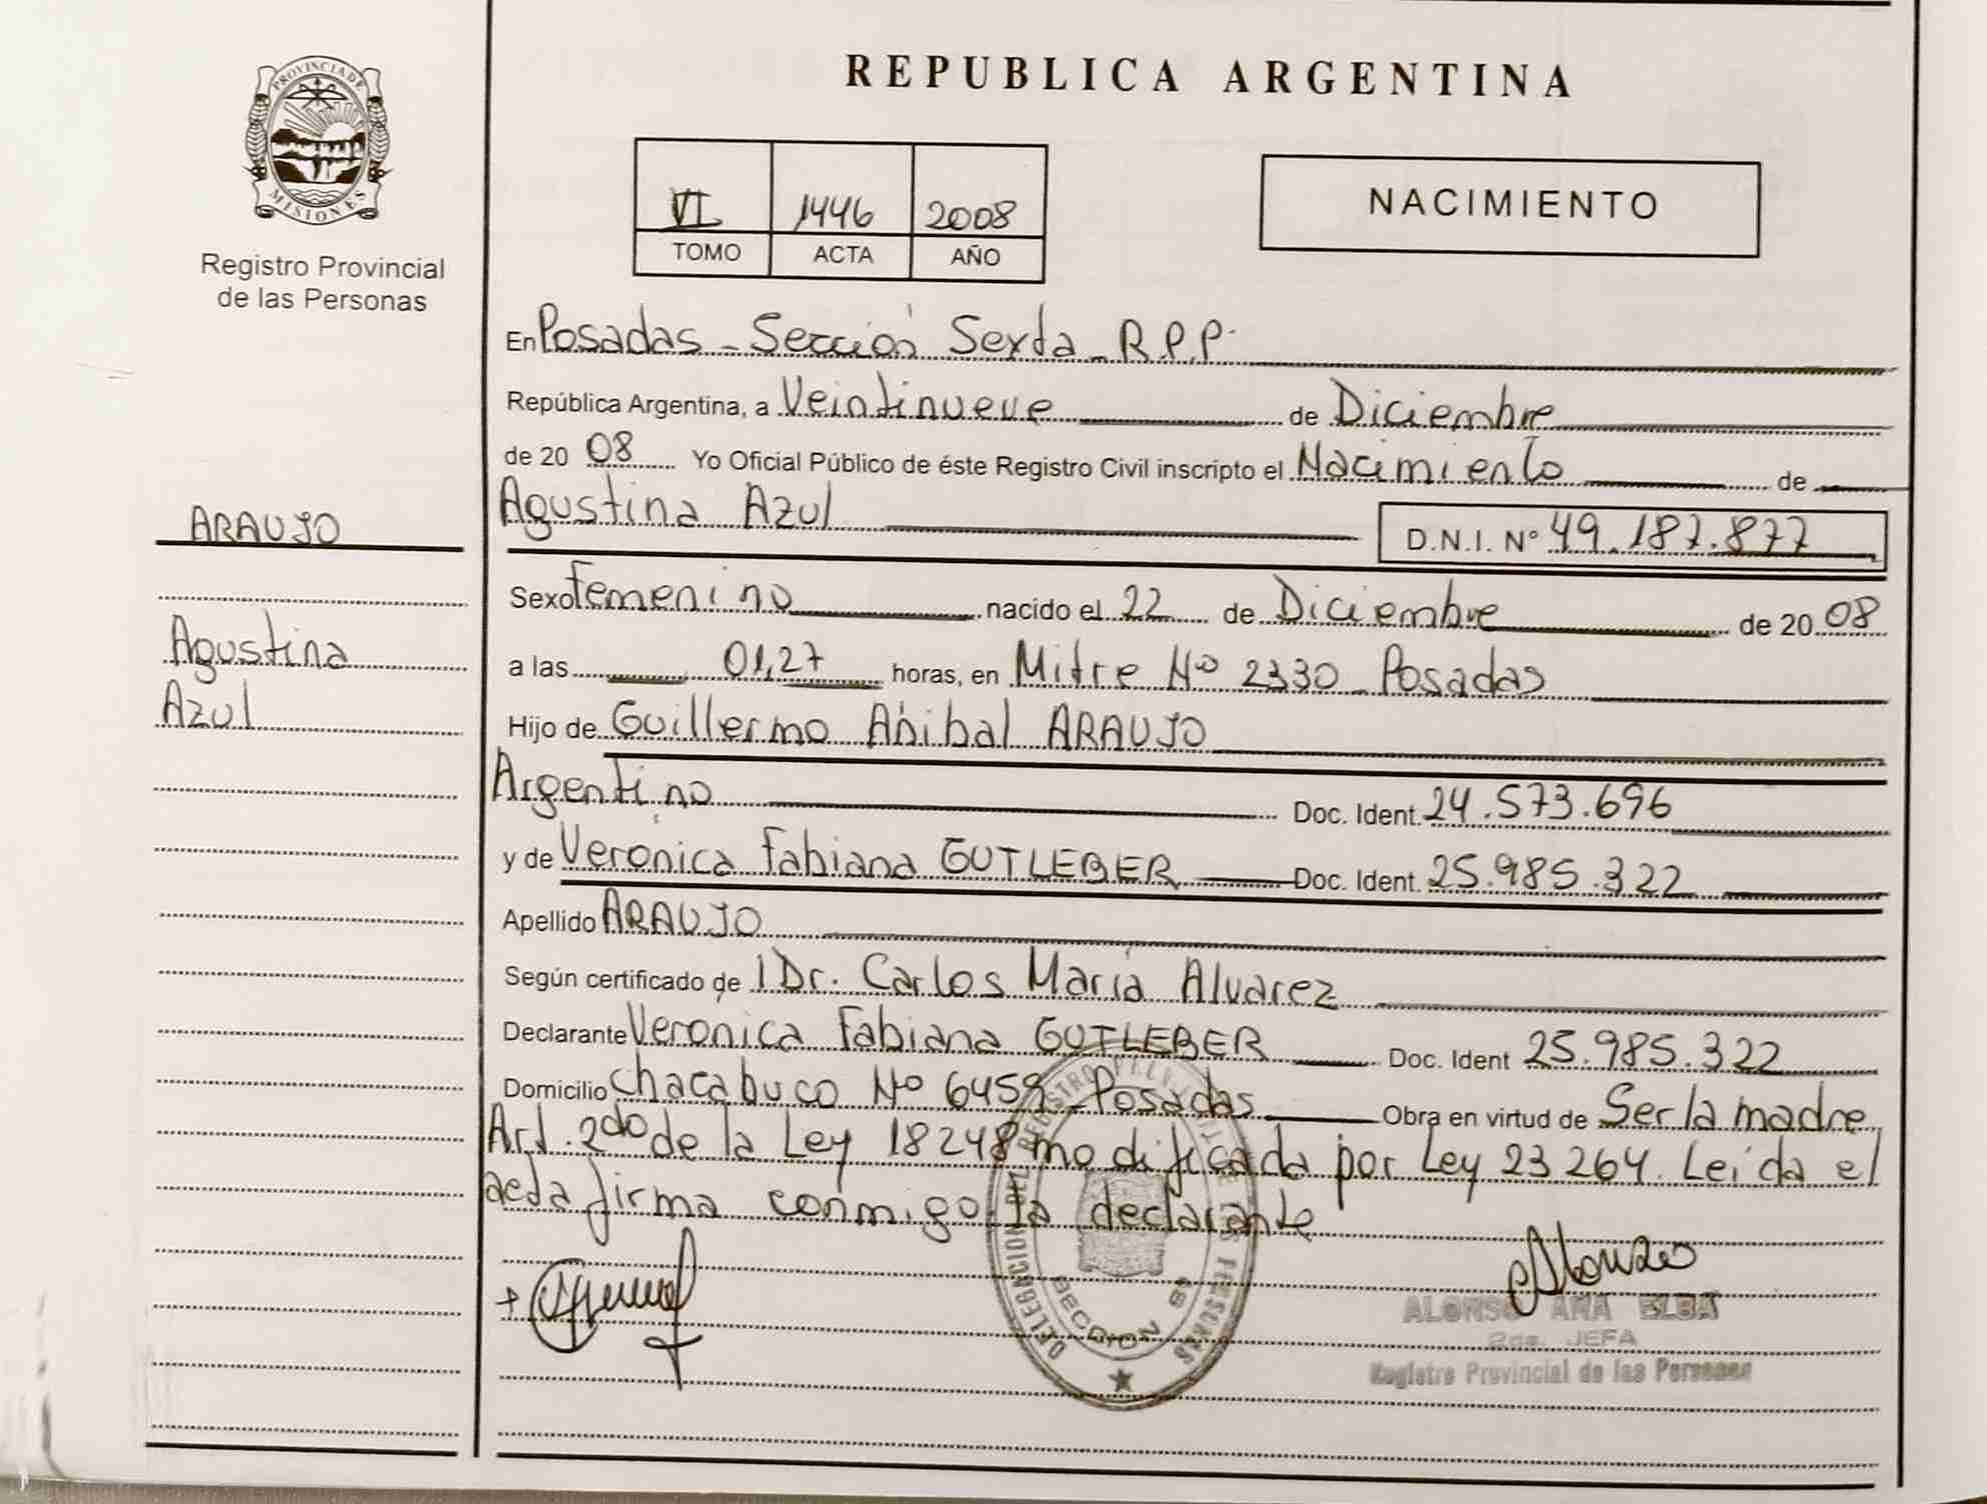 PROVINCIA DE
MISIONES
Registro Provincial
de las Personas
ARAUJO
Agustina
Azul
REPUBLICA ARGENTINA
VI 1446 2008
TOMO ACTA AÑO
NACIMIENTO
En Posadas - Sección Sexta - R.P.P.
República Argentina, a Veintinueve de Diciembre
de 20 08 Yo Oficial Público de éste Registro Civil inscripto el Nacimiento de
Agustina Azul D.N.I. Nº 49.187.877
Sexo Femenino nacido el 22 de Diciembre de 20 08
a las 01,27 horas, en Mitre Nº 2330 - Posadas
Hijo de Guillermo Anibal ARAUJO
Argentino Doc. Ident. 24.573.696
y de Verónica Fabiana GUTLEBER Doc. Ident. 25.985.322
Apellido ARAUJO
Según certificado de l Dr. Carlos María Alvarez
Declarante Verónica Fabiana GUTLEBER Doc. Ident 25.985.322
Domicilio Chacabuco Nº 6458 - Posadas Obra en virtud de Ser la madre
Art. 2do de la Ley 18248 modificada por Ley 23264. Leída el
acta firma conmigo la declarante
DELEGACION DEL REGISTRO DE LAS PERSONAS
SECCION 6ª
ALONSO ANA ELBA
2da. JEFA
Registro Provincial de las Personas